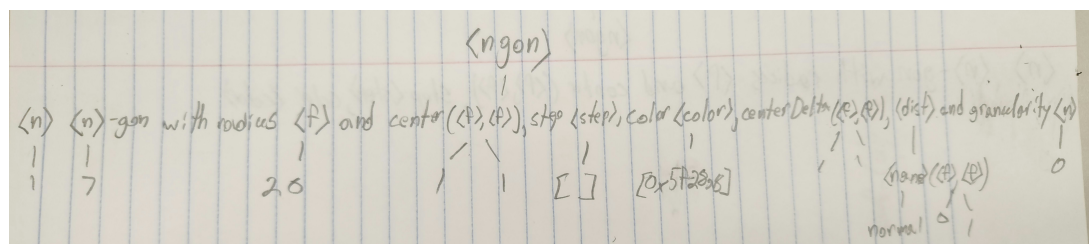 <ngon>
<n> <n>-gon with radius <f> and center(<f>,<f>), step <step>, color <color>, centerDelta(<f>,<f>), <dist> and granularity <n>
1 7 20 1 1 [ ] 1 1 <name>(<f>,<f>) 0
normal 0 1